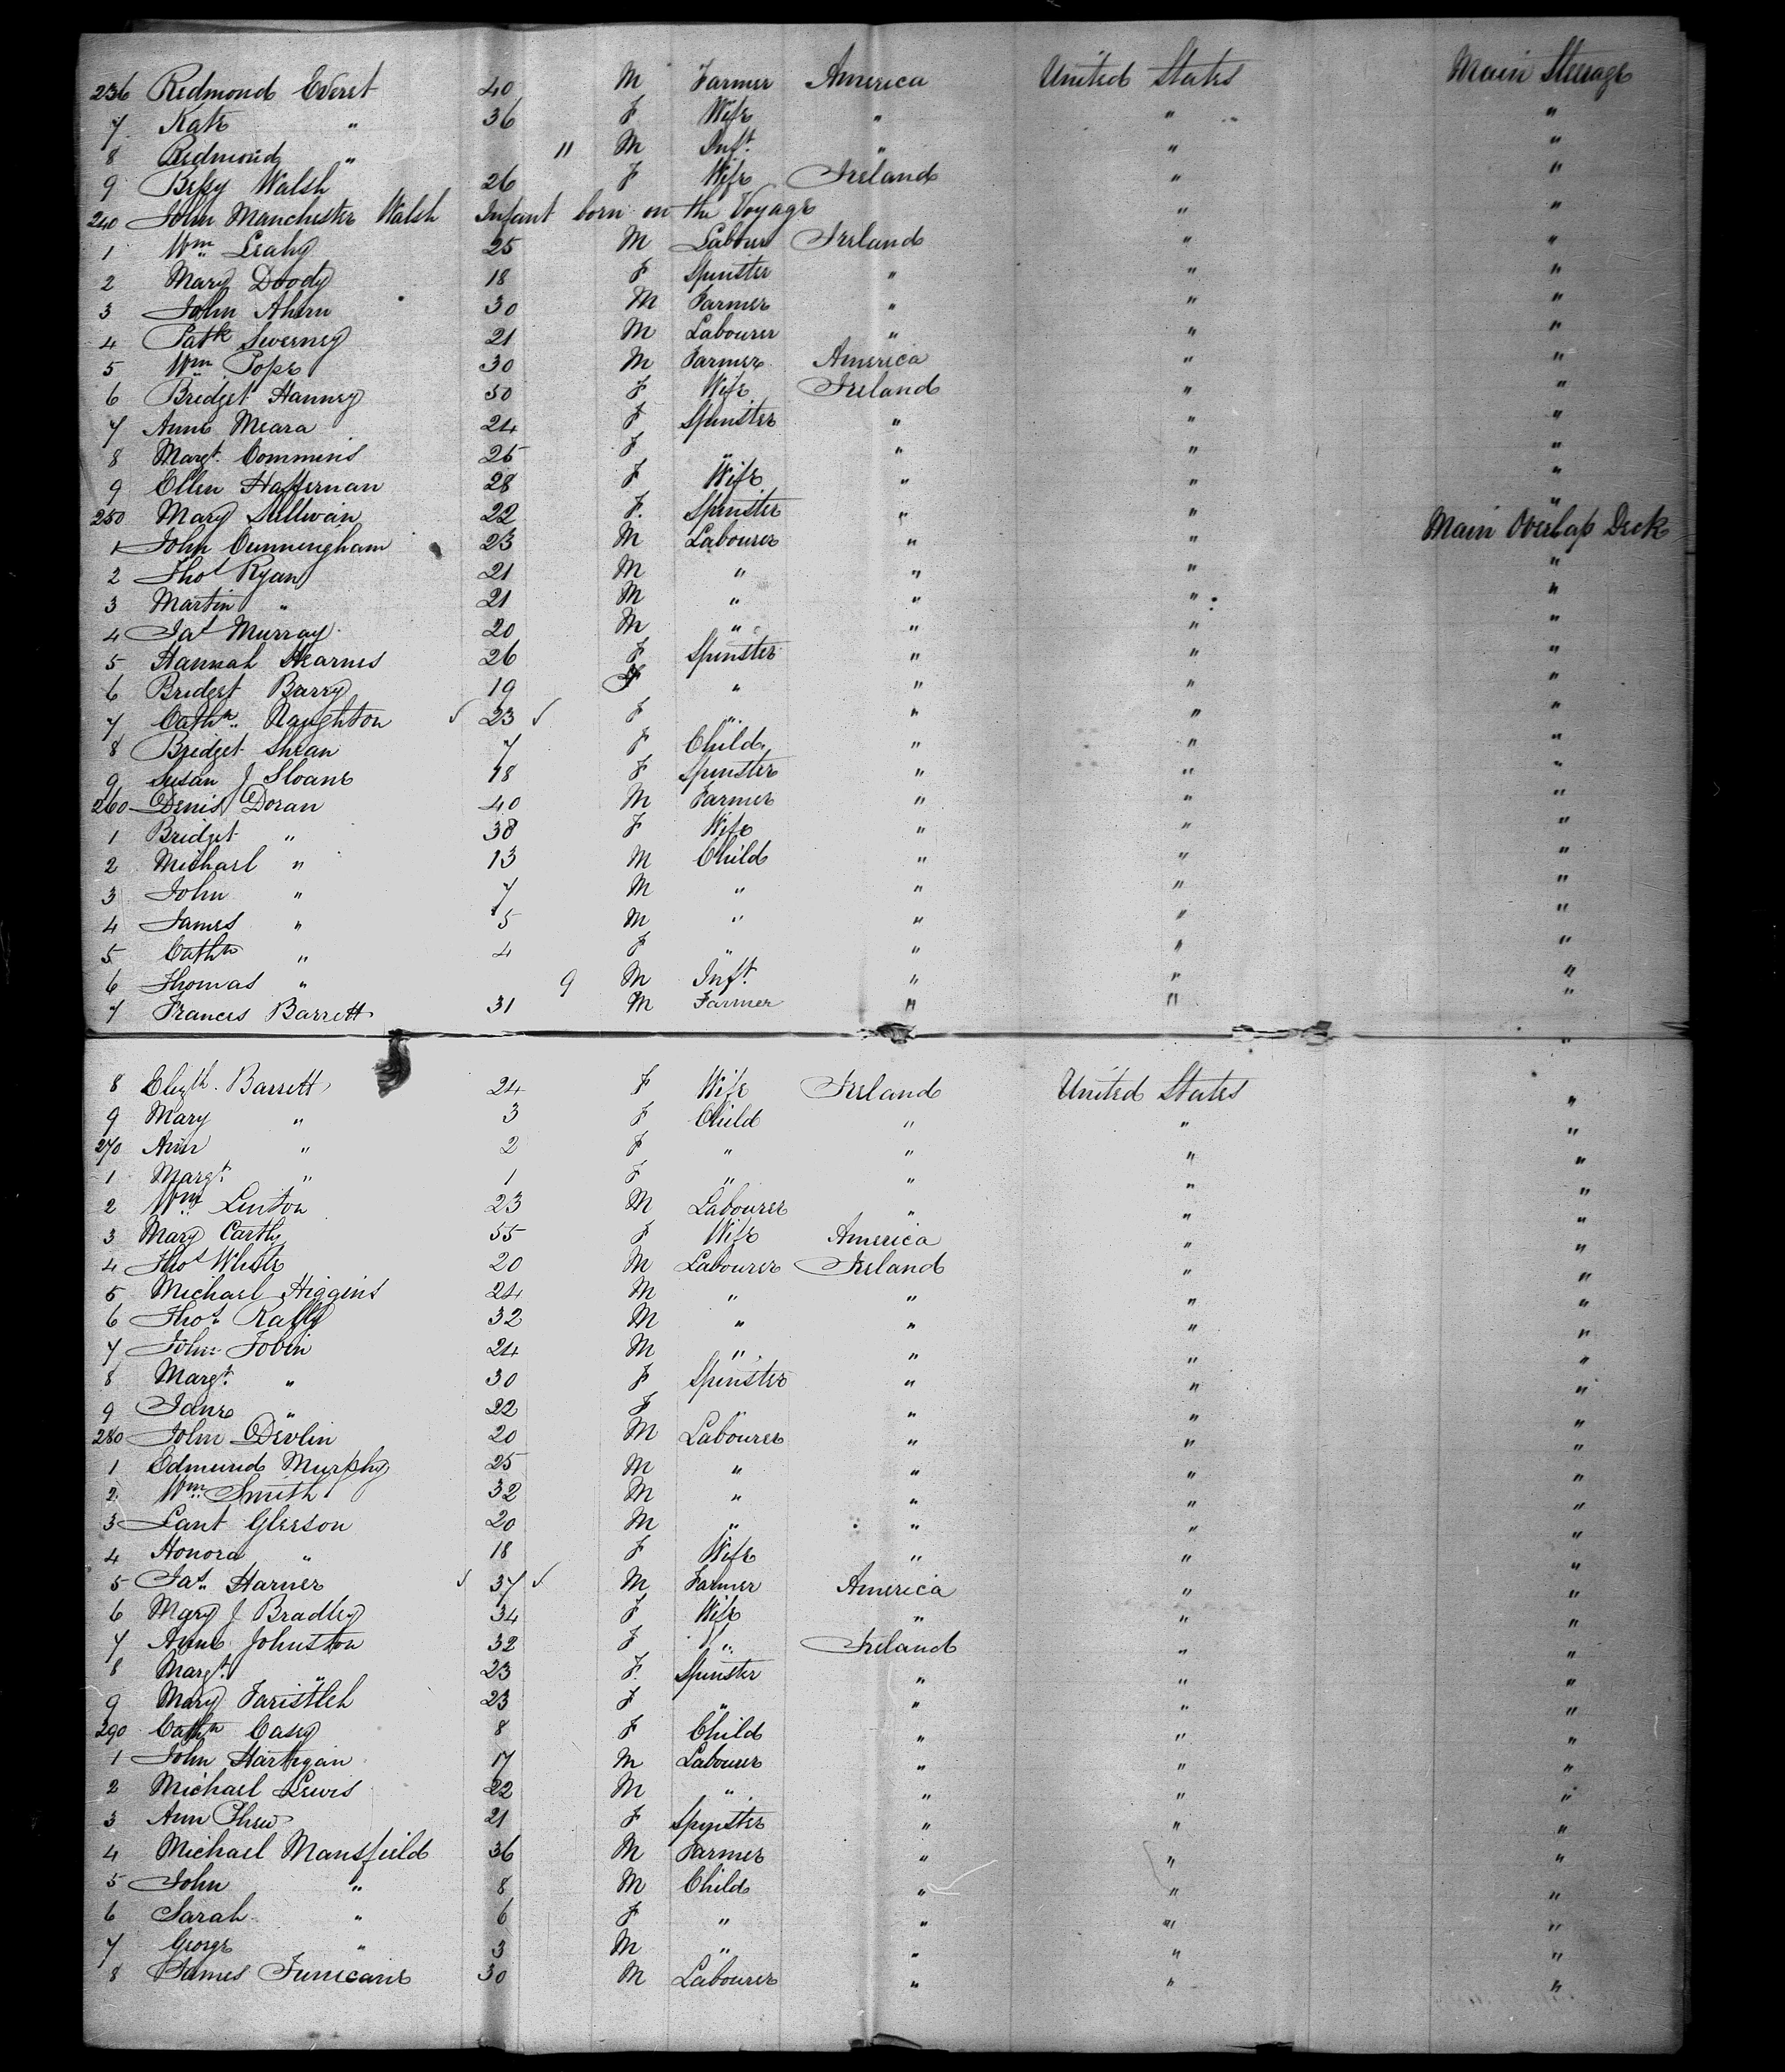 236 Redmond Everet 40 M Farmer America United States Main Steerage
7 Kate " 36 F Wife " " "
8 Redmond " 11 M Inft. " " "
9 Bessy Walsh 26 F Wife Ireland " "
240 John Manchester Walsh Infant born on the Voyage " "
1 Wm Leahy 25 M Labour Ireland " "
2 Mary Doody 18 F Spinster " " "
3 John Ahern 30 M Farmer " " "
4 Patk Sweeney 21 M Labourer " " "
5 Wm Pope 30 M Farmer America " "
6 Bridget Hanney 50 F Wife Ireland " "
7 Anne Meara 24 F Spinster " " "
8 Margt. Commins 25 F " " " "
9 Ellen Haffernan 28 F Wife " " "
250 Mary Sullivan 22 F. Spinster " " "
1 John Cunningham 23 M Labourer " " Main Overlap Deck
2 Thos Ryan 21 M " " " "
3 Martin " 21 M " " " "
4 Jas Murray 20 M " " " "
5 Hannah Kearnes 26 F Spinster " " "
6 Bridget Barry 19 F " " " "
7 Cathn. Naughton 23 F " " " "
8 Bridget Shean 7 F Child " " "
9 Susan J Sloane 18 F Spinster " " "
260 Denis Doran 40 M Farmer " " "
1 Bridget " 38 F Wife " " "
2 Michael " 13 M Child " " "
3 John " 7 M " " " "
4 James " 5 M " " " "
5 Cathn " 4 F " " " "
6 Thomas " 9 M Inft. " " "
7 Frances Barrett 31 M Farmer " " "
8 Elizth. Barrett 24 F Wife Ireland United States "
9 Mary " 3 F Child " " "
270 Ann " 2 F " " " "
1 Margt. " 1 F " " " "
2 Wm Linton 23 M Labourer " " "
3 Mary Carth 55 F Wife America " "
4 Thos White 20 M Labourer Ireland " "
5 Michael Higgins 24 M " " " "
6 Thos. Rally 32 M " " " "
7 John Tobin 24 M " " " "
8 Margt. " 30 F Spinster " " "
9 Jane " 22 F " " " "
280 John Devlin 20 M Labourer " " "
1 Edmund Murphy 25 M " " " "
2 Wm Smith 32 M " " " "
3 Lant Gleeson 20 M " " " "
4 Honora " 18 F Wife " " "
5 Jas. Harner 37 M Farmer America " "
6 Mary J Bradley 34 F Wife " " "
7 Anne Johnston 32 F " Ireland " "
8 Margt. " 23 F. Spinster " " "
9 Mary 23 F " " " "
290 Cathn Casey 8 F Child " " "
1 John Hartigan 17 M Labourer " " "
2 Michael Lewis 22 M " " " "
3 Ann 21 F Spinster " " "
4 Michael Mansfield 36 M Farmer " " "
5 John " 8 M Child " " "
6 Sarah " 6 F " " " "
7 George " 3 M " " " "
8 James Funicane 30 M Labourer " " "